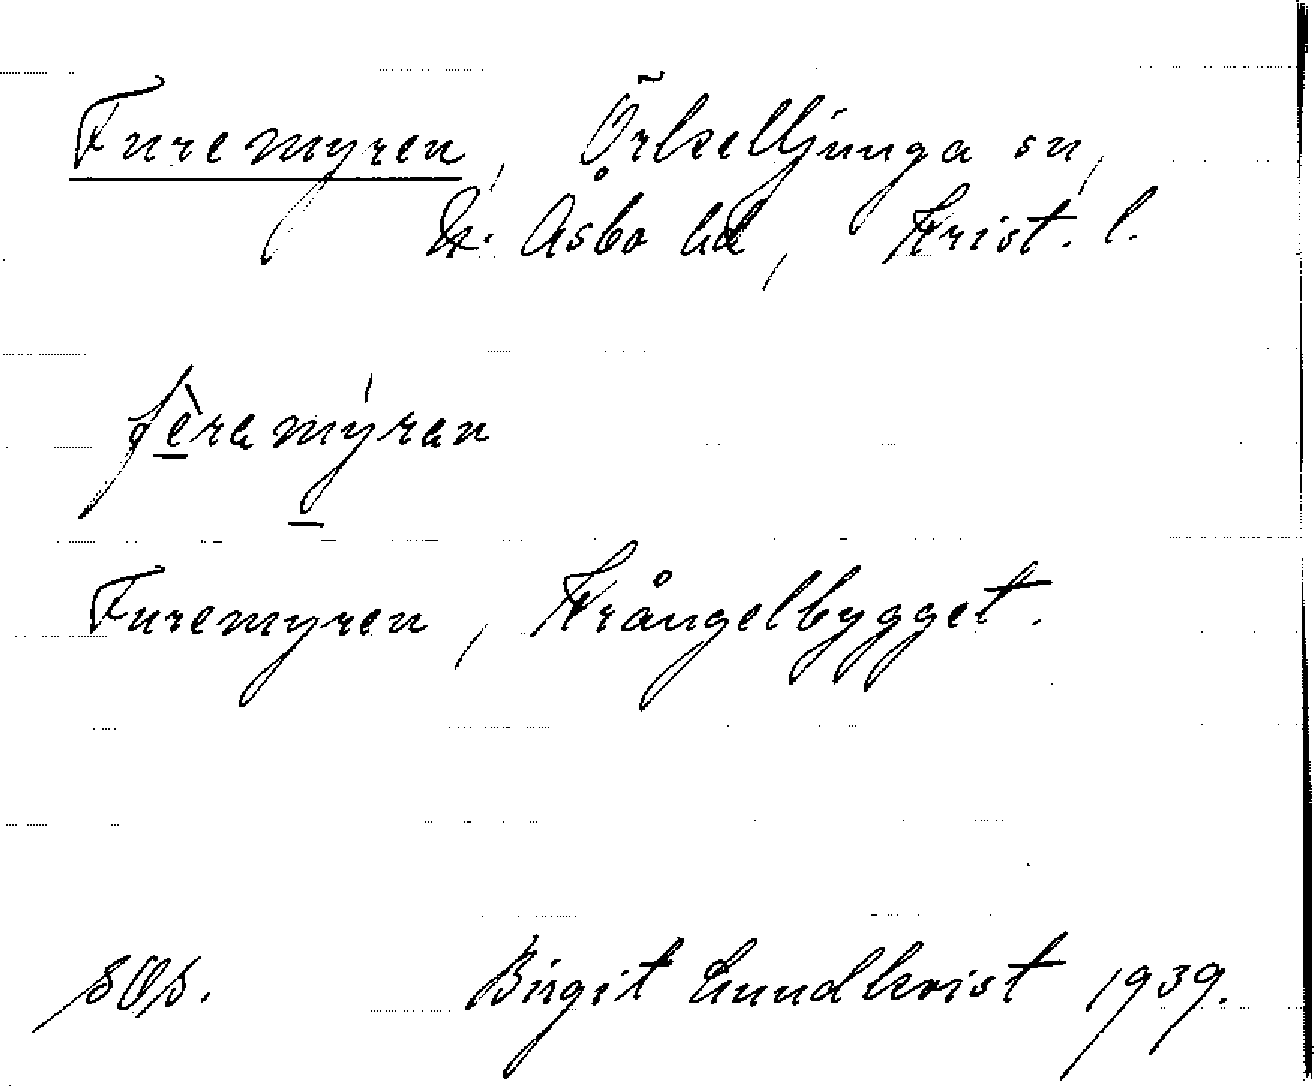 Furemyren, Örkelljunga sn,
N. Åsbo hd, Krist. l.
fèramýran
Furemyren, Krångelbygget.
Birgit Lundkvist 1939.